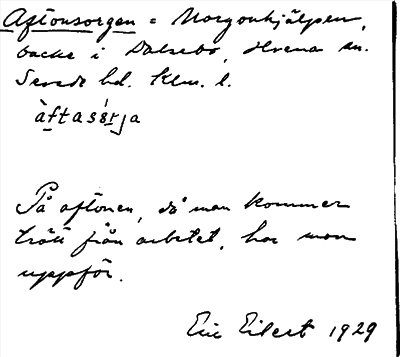 Aftonsorgen = Morgonhjälpen,
backe i Dalsebo, Hvena sn.
Sevede hd. Klm. l.
àftasǒrja
På aftonen, då man kommer
trött från arbetet, har man
uppför.
Eric Eilert 1929